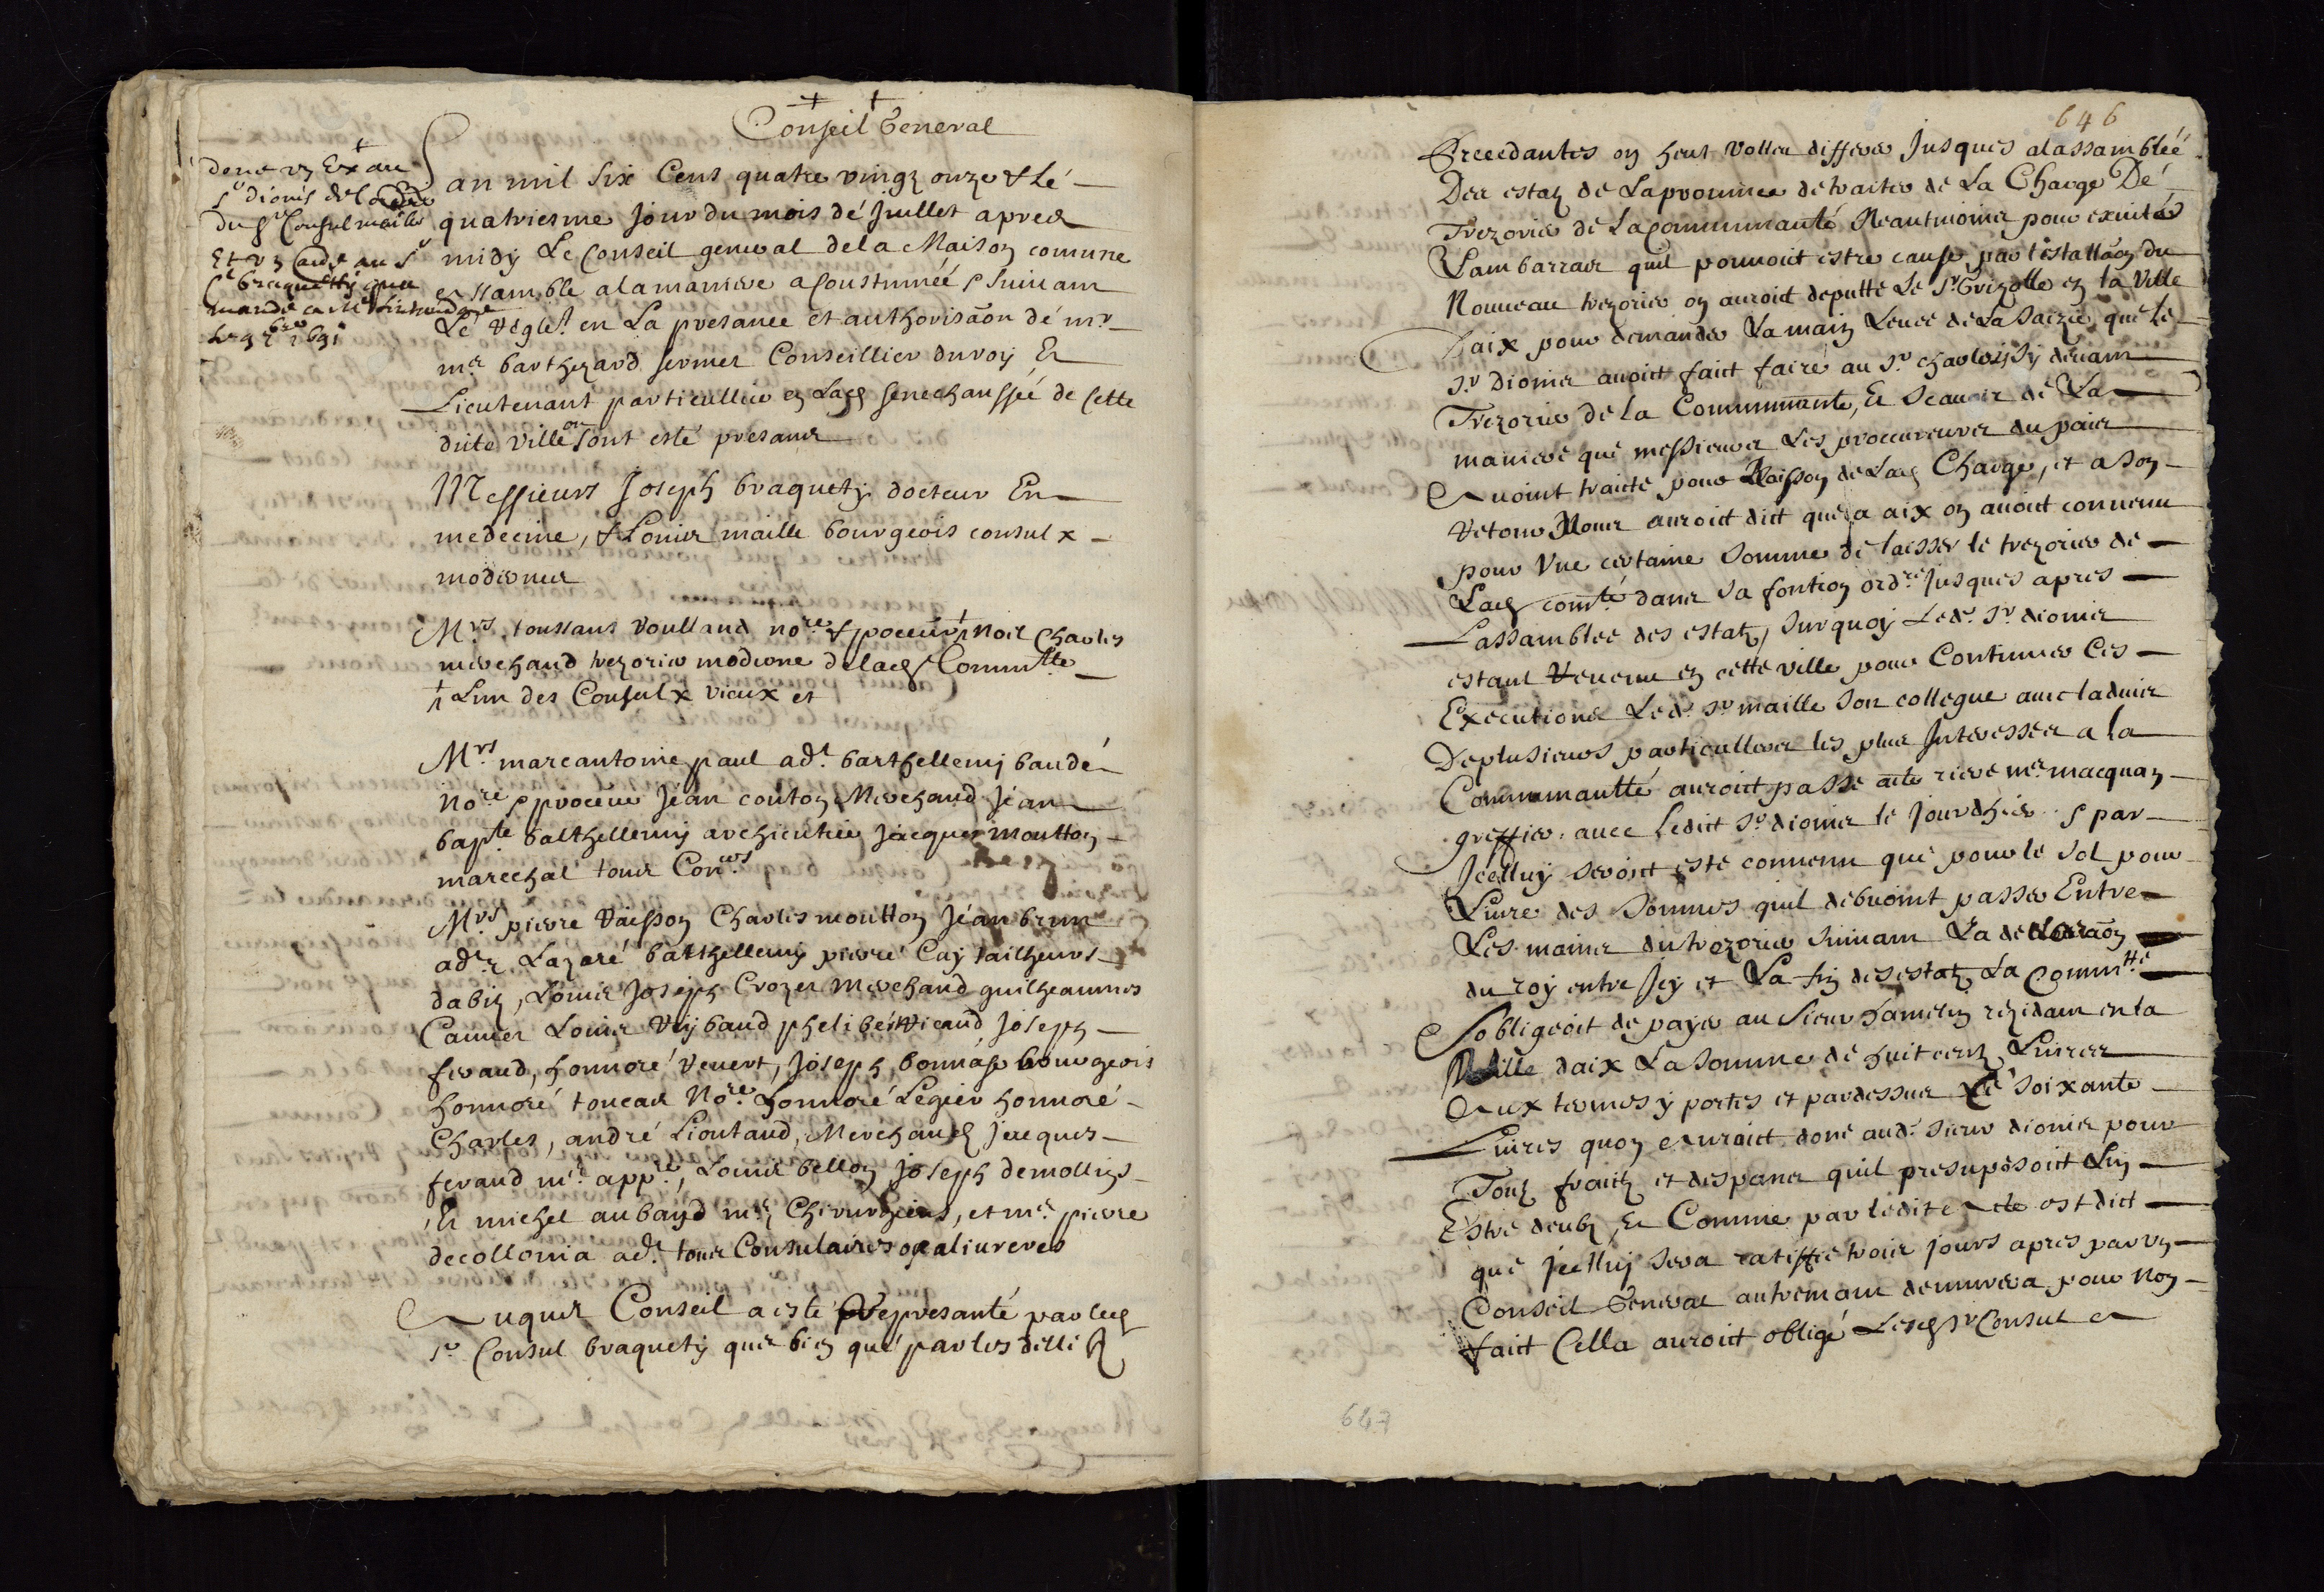 Conseil General
done un Ex au
sr dionis de lordre
du sr Consul maille
Et un Ledit au sr
braquetty que
mande ca Me
le 9 9bre 1691
an mil six Cens quatre vingz onze & Le
quatriesme Jour du mois de Juillet apres
midy Le Conseil general de la Maison comune
essamble a la maniere acoustumée suivam
Le regle.t en La presance et authorisaõn de mr
mre barthezard fermer Conseillier du roy Et
Lieutenant particullier en Lad senechaussée de Cette
dite ville ou sont esté presans
Messieurs Joseph braquety docteur En
medecine, & Louis maille bourgeois consulx
modernes
Mrs toussans voulland nore & proceur Noel Charles
merchand trezorier moderne de lad Commtte
Lun des Consulx vieux et
Mrs marcantoine paul adt barthellemy baude
nore & proceur Jean couton Merchand Jean
bapte balthellemy archieutier Jacques moutton
marechal tous Coners
Mrs pierre vaisson Charles moutton Jean brun
adts Lazare barthellemy pierre Cay tailheurs
dabis, Louis Joseph Crozet Merchand guilheaumes
Camier Louis Reybaud phelibert Ricaud Joseph
feraud, honnoré Revert, Joseph bonnase bourgeois
honnoré toucas Nore honnoré Legier honnoré
Charles, andré Lioutaud, Merchand Jacques
feraud md appre, Louis bellon Joseph demollins
Et michel aubayd mes Chirurgiens, et mre pierre
decollonia adt tous Consulaires ou aliureres
Auquel Conseil a este Represanté par led
sr Consul braquety que bien que par les delli
646
Precedantes on heut vollu differer Jusques alassamblée
Des estaz de Laprovince de traiter de La Charge De
Trezorier de La Communauté Neautmoins pour eviter
Lambarras quil pourroit estre cause par listallaõn du
Nouveau trezorier on auroit deputté Le sr Grizolle en la Ville
Daix pour demander La main Levée de La saizie que le
sr dionis avoit faict faire au sr charles sy devant
Trezorier de la Communauté, Et Scavoir de La
maniere que messieurs Les procureurs du pais
Avoint traicté pour Raison de Lad Charge, et a son
retour Nous auroit dict que a aix on avoit convenu
pour Une certaine somme de laisser le trezorier de
Lad comté dans sa fontion ordre Jusques apres
Lassamblée des estatz, surquoy Led. sr dionis
estant venenu en cette ville pour Continuer Ces
Executions Led. sr maille son collegue avec ladvis
De plusieurs particulliers les plus Interesses a la
Communautté auroit passé acte riere me macquan
greffier. avec Ledict sr dionis le Jourdhier & par
Jcelluy seroit esté convenu que pour le sol pour
Livre des sommes quil debvoint passer Entre
Les mains du trezorier suivam La declaraõn
du roy entre Jcy et La fin des estatz La Commtté
Sobligeoit de payer au sieur hamelin rezidam en la
Ville daix La somme de huit cens Livres
Aux termes y portes et pardessus Le soixante
Livres quon auroit doné aud. sieur dionis pour
Touz fraitz et despans quil presuposoit Luy
Estre deubz, Et Comme par ledit acte est dict
que Jcelluy sera ratiffié trois jours apres par un
Conseil General autremant demurera pour Non
fait Cella auroit obligé Lesd sr Consul a
647